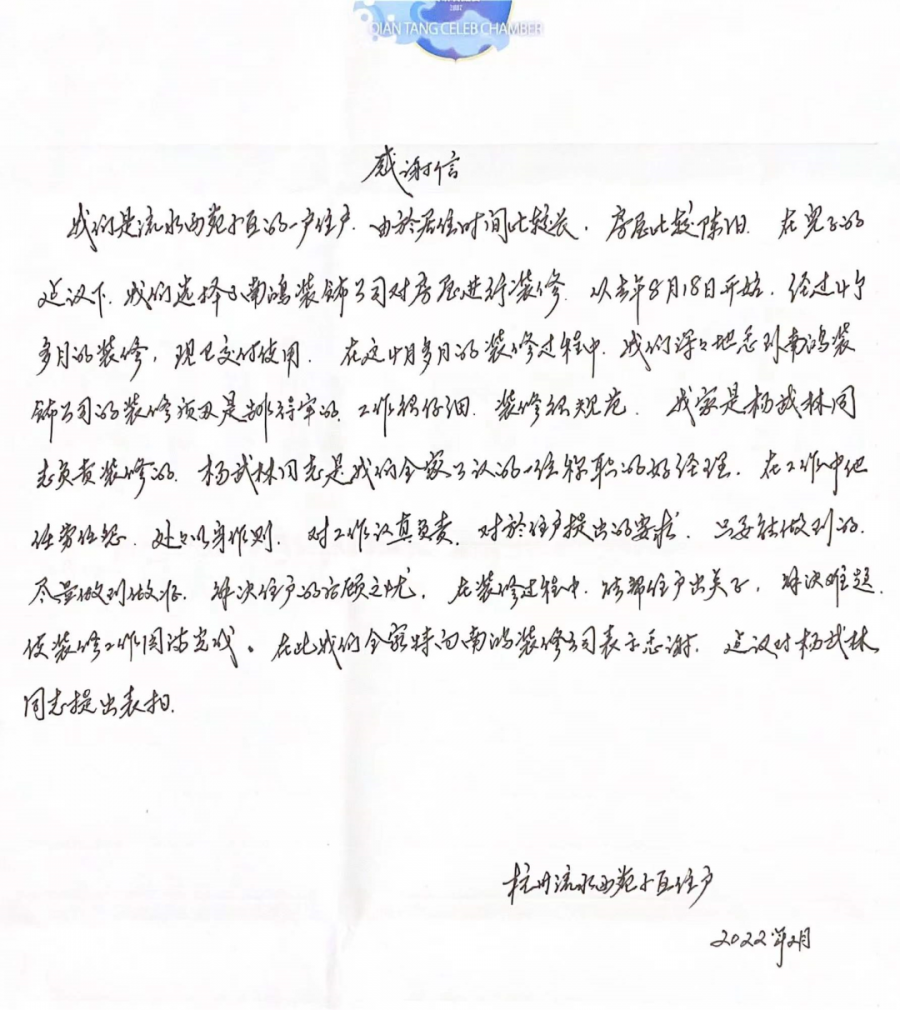 1897
QIAN TANG CELEB CHAMBER
感谢信
我们是流水西苑小区的一户住户.由於居住时间比较长,房屋比较陈旧.在儿子的
建议下.我们选择了南鸿装饰公司对房屋进行装修.从去年8月18日开始.经过4个
多月的装修,现已交付使用.在这4个月多月的装修过程中.我们深深地感到南鸿装
饰公司的装修质量是排得牢的.工作很仔细.装修很规范.我家是杨武林同
志负责装修的.杨武林同志是我们全家公认的一位称职的好经理.在工作中他
任劳任怨.处处以身作则.对工作认真负责.对於住户提出的要求.只要能做到的.
尽量做到做好.解决住户的后顾之忧.在装修过程中.能帮住户出点子,解决难题.
使装修工作圆满完成。在此我们全家特向南鸿装修公司表示感谢.建议对杨武林
同志提出表扬.
杭州流水西苑小区住户
2022年2月